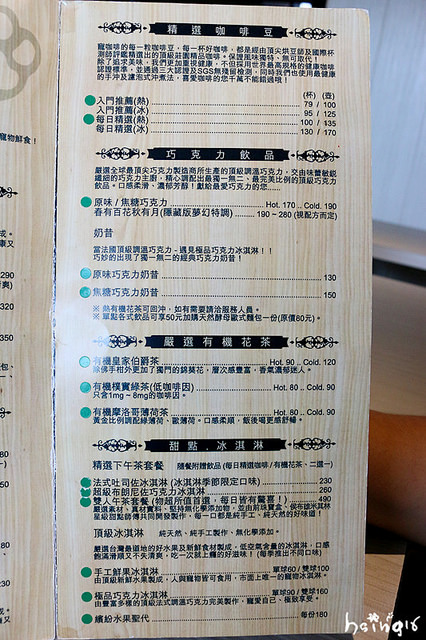 精選咖啡豆
寵咖啡的每一粒咖啡豆，每一杯好咖啡，都是經由頂尖烘豆師及國際杯
測師評鑑精選出的頂級莊園精品咖啡。保證風味獨特、無可取代！
除了追求美味，我們更加重視健康，不但採用世界最高規格的健康咖啡
認證標準，並通過三大認證及SGS無殘留檢測，同時我們也使用最健康
的手沖及濾泡式沖煮法，喜愛咖啡的您千萬不能錯過哦！
(杯) (壺)
入門推薦(熱) 79 / 100
入門推薦(冰) 95 / 125
每日精選(熱) 100 / 135
每日精選(冰) 130 / 170
巧克力飲品
嚴選全球最頂尖巧克力製造商所生產的頂級調溫巧克力，交由味蕾敏銳
纖細的巧克力主廚，精心調配出最獨一無二、最完美比例的頂級巧克力
飲品。口感柔滑、濃郁芳醇！獻給最愛巧克力的您......
原味 / 焦糖巧克力 Hot. 170 .. Cold. 190
春有百花秋有月(隱藏版夢幻特調) 190 ~ 280 (視配方而定)
奶昔
當法國頂級調溫巧克力 - 遇見極品巧克力冰淇淋！！
巧妙的出現了獨一無二的經典巧克力奶昔！
原味巧克力奶昔 130
焦糖巧克力奶昔 150
※ 熱有機花茶可回沖，如有需要請洽服務人員。
※ 單點各式飲品可享50元加購天然酵母歐式麵包一份(原價80元)。
嚴選有機花茶
有機皇家伯爵茶 Hot. 90 .. Cold. 120
除佛手柑外更加了獨門的錦葵花，層次感豐富，香氣濃郁迷人。
有機樸實綠茶(低咖啡因) Hot. 80 .. Cold. 90
只含1mg ~ 8mg的咖啡因。
有機摩洛哥薄荷茶 Hot. 80 .. Cold. 90
黃金比例調配綠薄荷、歐薄荷。口感柔順，飯後喝更感舒暢。
甜點．冰淇淋
精選下午茶套餐 隨餐附贈飲品 (每日精選咖啡 / 有機花茶、二選一)
法式吐司佐冰淇淋 (冰淇淋季節限定口味) 230
超級布朗尼佐巧克力冰淇淋 260
雙人午茶套餐 (物超所值首選，每日皆有驚喜！) 490
嚴選素材、真材實料、堅持無化學添加物，並由前珠寶盒、侯布雄米其林
星級甜點師傅共同開發製作，每一口都是純手工、純天然的好味道！
頂級冰淇淋 純天然、純手工製作、無化學添加。
嚴選台灣最道地的好水果及新鮮食材製成，低空氣含量的冰淇淋，口感
飽滿滑順又不失清爽，吃一次就上癮的好滋味！(每季推出不同口味)
手工鮮果冰淇淋 單球60 / 雙球100
由頂級新鮮水果製成，人與寵物皆可食用，市面上唯一的寵物冰淇淋。
極品巧克力冰淇淋 單球90 / 雙球160
由豐富多樣的頂級法式調溫巧克力完美製作，寵愛自己、極致享受。
繽紛水果聖代 每份180
寵物鮮食！
290
320
350
280
230
heing16